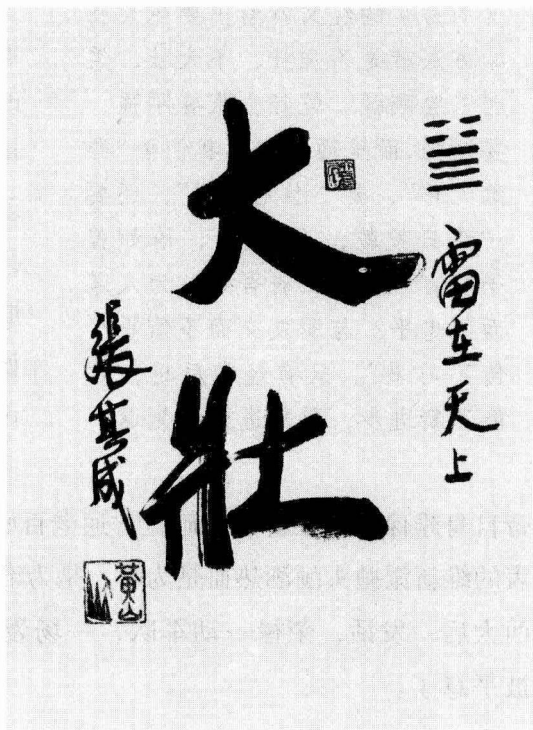 雷在天上
大壯
張其成
黃山